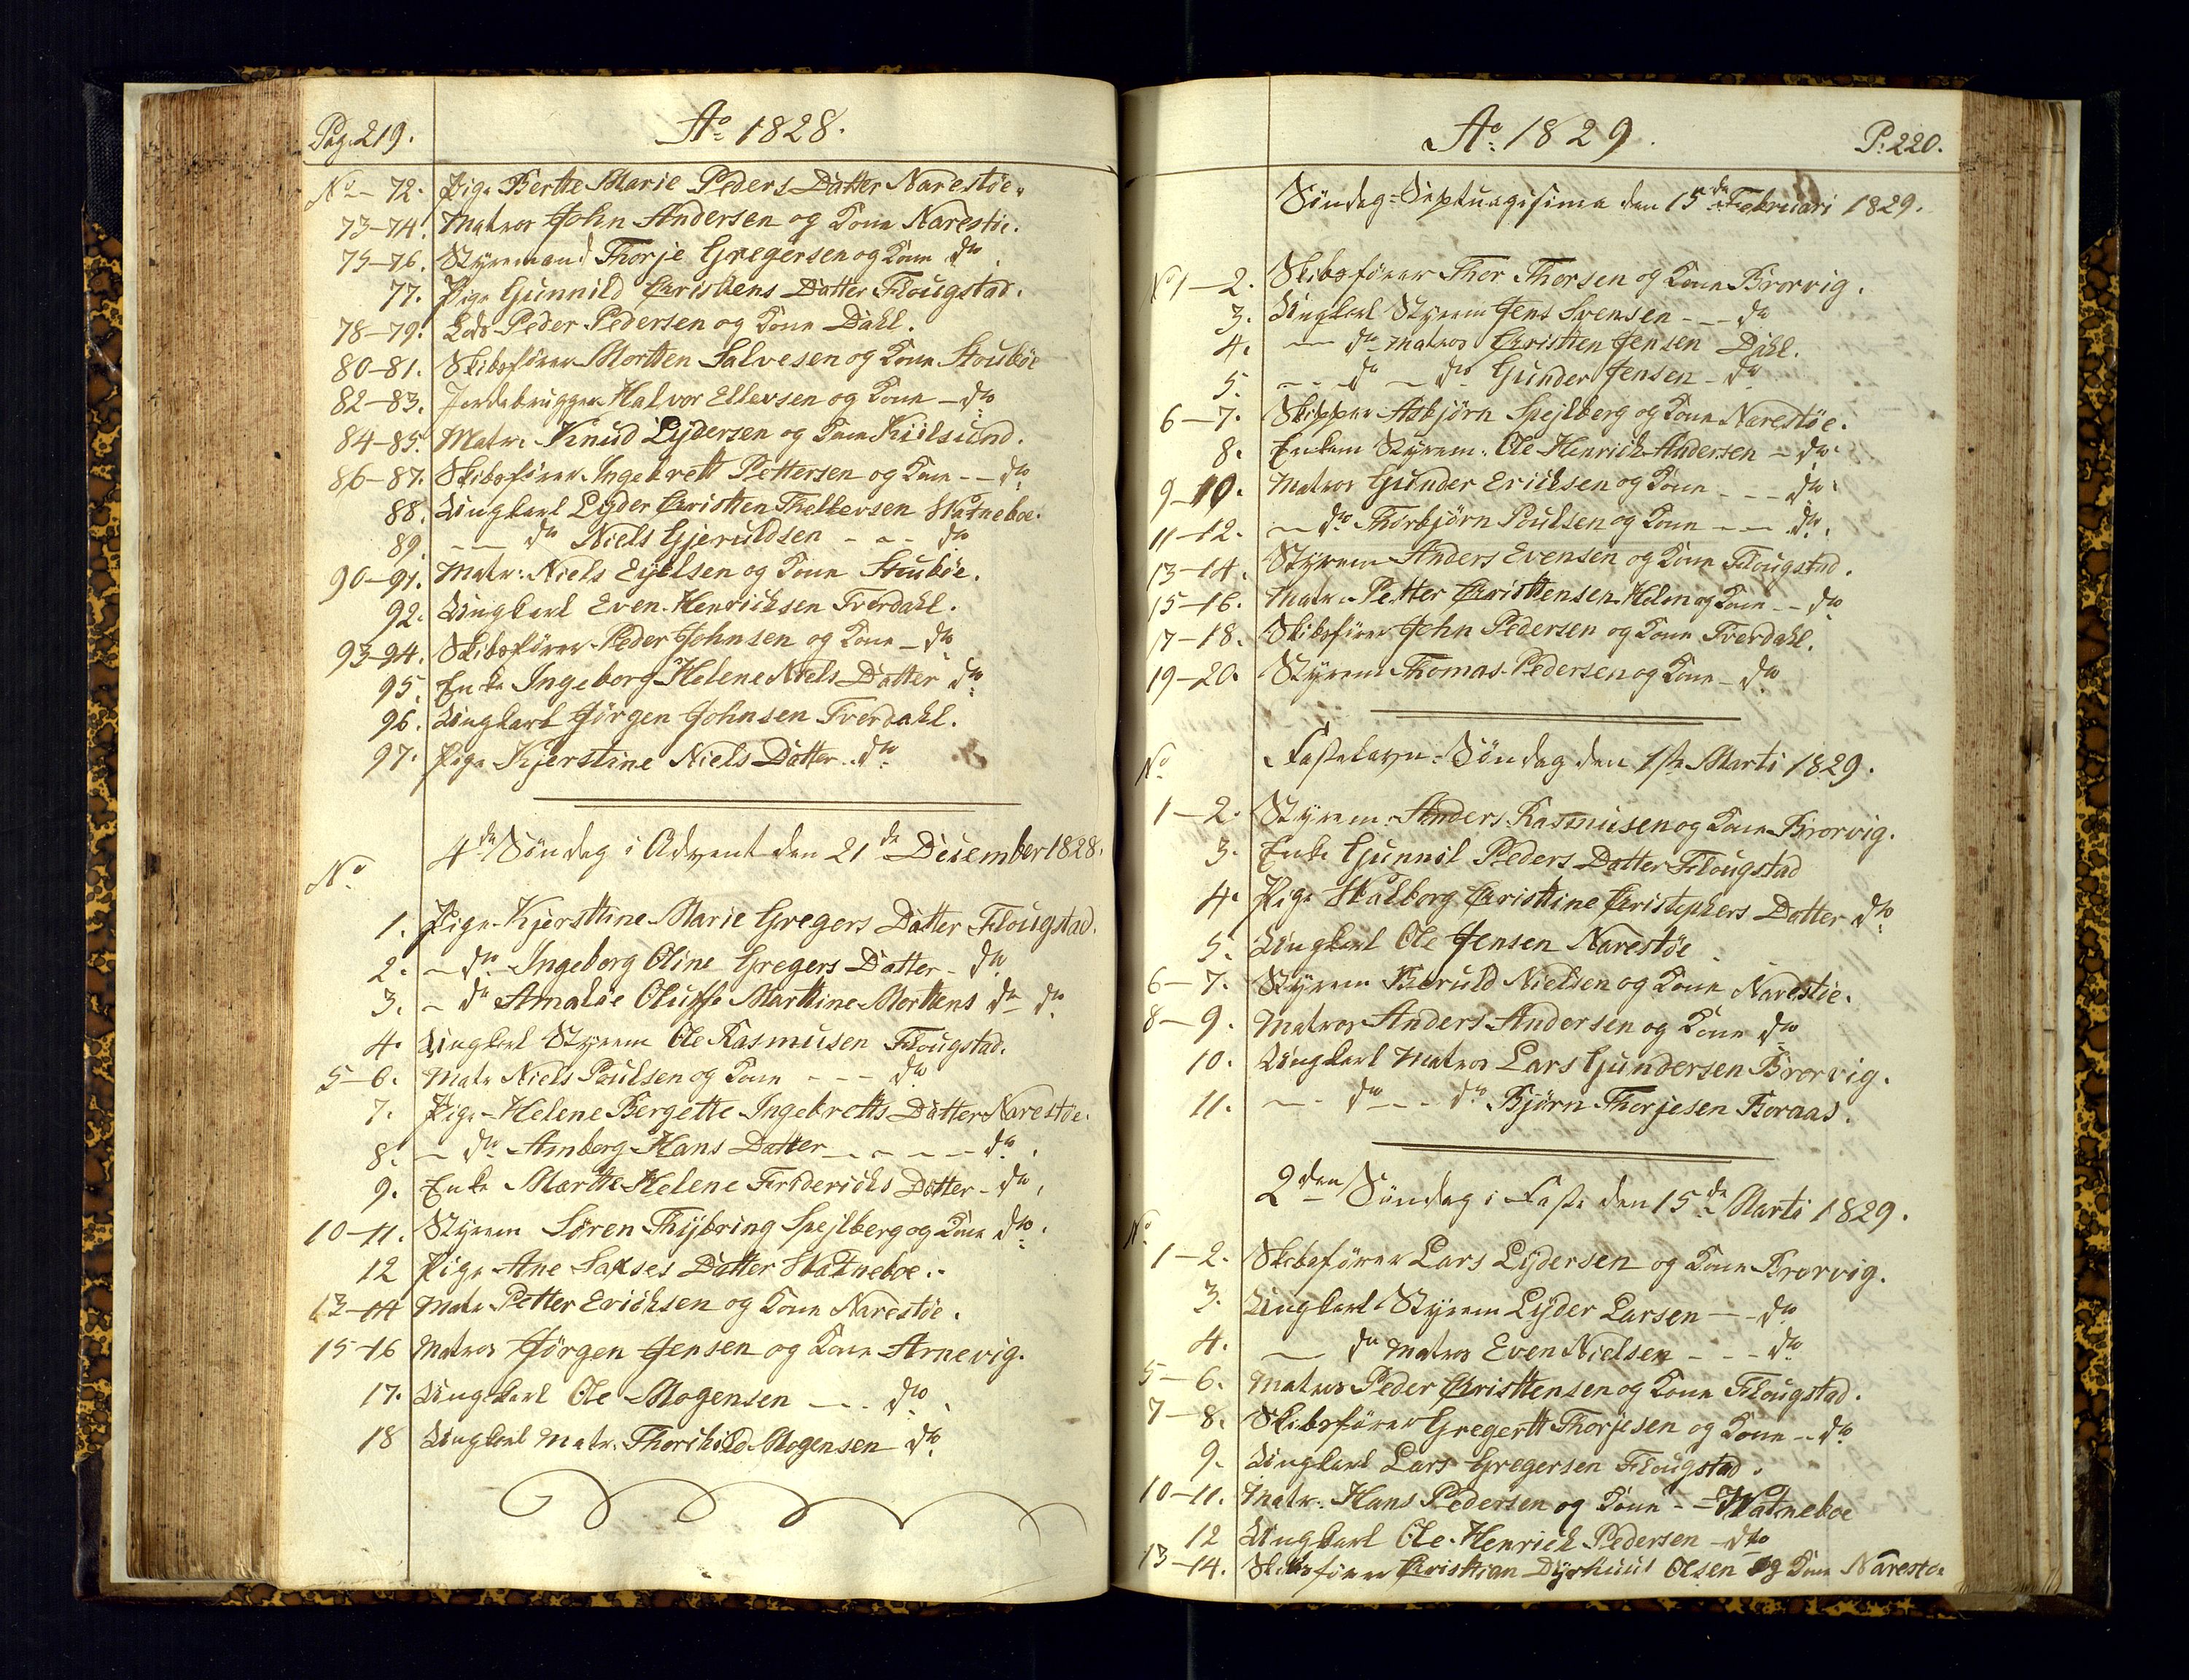 Pag. 219.
Ao 1828.
No 72. Pige Berthe Marie Peders Datter Narestøe.
73-74. Matros John Andersen og Kone Narestøe.
75-76. Styremand Thorje Gregersen og Kone do
77. Pige Gunnild Christens Datter Flougstad.
78-79. Lods Peder Pedersen og Kone Dahl.
80-81. Skibsfører Mortten Salvesen og Kone Stoubøe
82-83. Jordebrugger Halvor Ellevsen og Kone - do
84-85. Matr: Knud Lydersen og Kone Kiilsund.
86-87. Skibsfører Ingebrett Pettersen og Kone -- do
88. Ungkarl Lyder Christen Thellevsen Watneboe.
89. -- do Niels Gjeruldsen - - - do
90-91. Matr: Niels Eyelsen og Kone Stoubøe.
92. Ungkarl Even Henrichsen Tverdahl.
93-94. Skibsfører Peder Johnsen og Kone - do
95. Enke Ingeborg Helene Niels Datter do
96. Ungkarl Jørgen Johnsen Tverdahl.
97. Pige Kjerstine Niels Datter. do
4de Søndag i Advent den 21de December 1828.
No
1. Pige Kjersttine Marie Gregers Datter Flougstad.
2. - do Ingeborg Oline Gregers Datter - do
3. - do Amalie Oluffe Marttine Morttens do do
4. Ungkarl Styrem Ole Rasmusen Flougstad.
5-6. Matr Niels Poulsen og Kone --- do
7. Pige Helene Bergette Ingebretts Datter Narestøe.
8. - do Amborg Hans Datter - - - - do.
9. Enke Martte Helene Friderichs Datter - do,
10-11. Styrem Søren Thybring Spejlberg og Kone do.
12 Pige Ane Saxses Datter Watneboe.
13-14 Matr Petter Erichsen og Kone Narestøe.
15-16 Matros Jørgen Jensen og Kone Arnevig.
17. Ungkarl Ole Mogensen --- do.
18 Ungkarl Matr. Thorkild Mogensen do.
Ao 1829.
P: 220.
Søndag Septuagisima den 15de Februari 1829.
No 1-2. Skibsfører Thor Thorsen og Kone Brorvig.
3. Ungkarl Styrem Jens Svensen --- do
4. -- do Matros Christen Jensen Dahl.
5. --- do - do Gunder Jensen - do
6-7. Skipper Asbjørn Spejlberg og Kone Narestøe.
8. Enkem Styrem. Ole Henrich Andersen - do.
9-10. Matros Gunder Erichsen og Kone --- do.
11-12. -- do Thorbjørn Poulsen og Kone --- do.
13-14. Styrem Anders Evensen og Kone Flougstad.
15-16. Matr. Petter Christtensen Holm og Kone -- do
17-18. Skibsfører John Pedersen og Kone Tverdahl.
19-20. Styrem Thomas Pedersen og Kone - do
No
Fastelavn-Søndag den 1ste Marti 1829.
1-2. Styrem. Anders Rasmusen og Kone Brorvig.
3. Enke Gunnil Peders Datter Flougstad
4. Pige Walborg Christtine Christophers Datter do
5. Ungkarl Ole Jensen Narestøe
6-7. Styrem Beruld Nielsen og Kone Narestøe.
8-9. Matros Anders Andersen og Kone do
10. Ungkarl Matros Lars Gundersen Brorvig.
11. --- do --- do Bjørn Thorjesen Boraas.
2den Søndag i Faste den 15de Marti 1829.
No
1-2. Skibsfører Lars Lydersen og Kone Brorvig.
3. Ungkarl Styrem Lyder Larsen --- do
4. -- do Matros Even Nielsen --- do
5-6. Matros Peder Christtensen og Kone Flougstad.
7-8. Skibsfører Gregertt Thorjesen og Kone -- do
9. Ungkarl Lars Gregersen Flougstad.
10-11. Matr. Hans Pedersen og Kone -- Watneboe
12 Ungkarl Ole Henrich Pedersen - do
13-14. Skibsfører Christtian Dyrhuus Olsen og Kone Narestøe